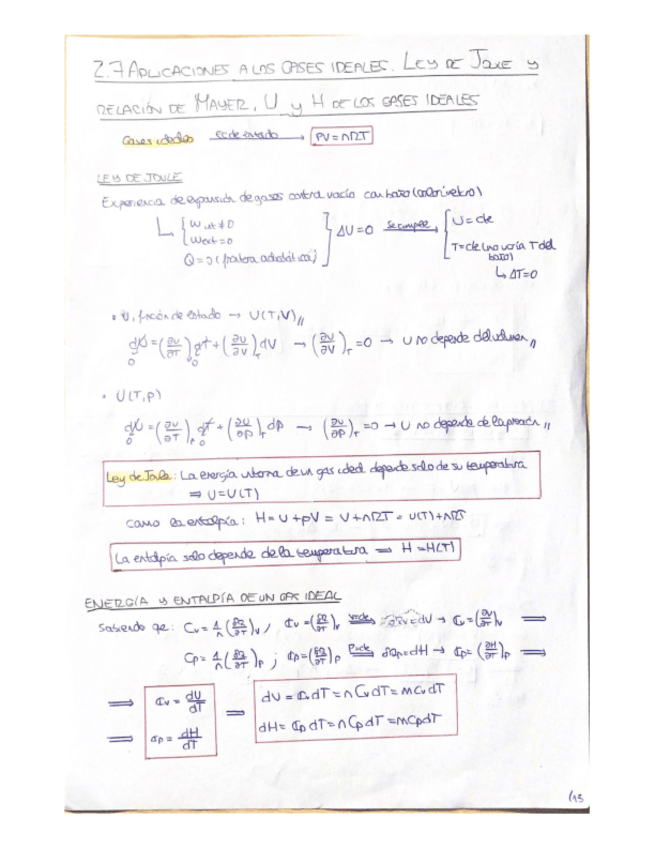 2.7 APLICACIONES A LOS GASES IDEALES. LEY DE JOULE Y
RELACIÓN DE MAYER, U y H DE LOS GASES IDEALES
Gases ideales ec de estado → PV = nRT
LEY DE JOULE
Experiencia de expansión de gases contra vacío con baño (calorímetro)
W int ≠ 0
W ext = 0
Q = 0 (frontera adiabática)
ΔU = 0 se cumple →
U = cte
T = cte (no varía T del baño)
↳ ΔT = 0
• U, función de estado → U(T,V)
dU = (∂U/∂T)_V dT + (∂U/∂V)_T dV → (∂U/∂V)_T = 0 → U no depende del volumen
0 0
• U(T,P)
dU = (∂U/∂T)_P dT + (∂U/∂P)_T dp → (∂U/∂P)_T = 0 → U no depende de la presión
0 0
Ley de Joule: La energía interna de un gas ideal depende solo de su temperatura
⇒ U = U(T)
como la entalpía: H = U + pV = U + nRT = U(T) + nRT
La entalpía solo depende de la temperatura ⇒ H = H(T)
ENERGÍA Y ENTALPÍA DE UN GAS IDEAL
Sabiendo que: Cv = 1/n (δQ/∂T)_V ; Cv = (δQ/∂T)_V V=cte ⇒ δQv = dU → Cv = (∂U/∂T)_V ⇒
Cp = 1/n (δQ/∂T)_P ; Cp = (δQ/∂T)_P P=cte ⇒ δQp = dH → Cp = (∂H/∂T)_P ⇒
⇒ Cv = dU/dT
⇒ Cp = dH/dT
⇒ dU = Cv dT = n Cv dT = m Cv dT
dH = Cp dT = n Cp dT = m Cp dT
13